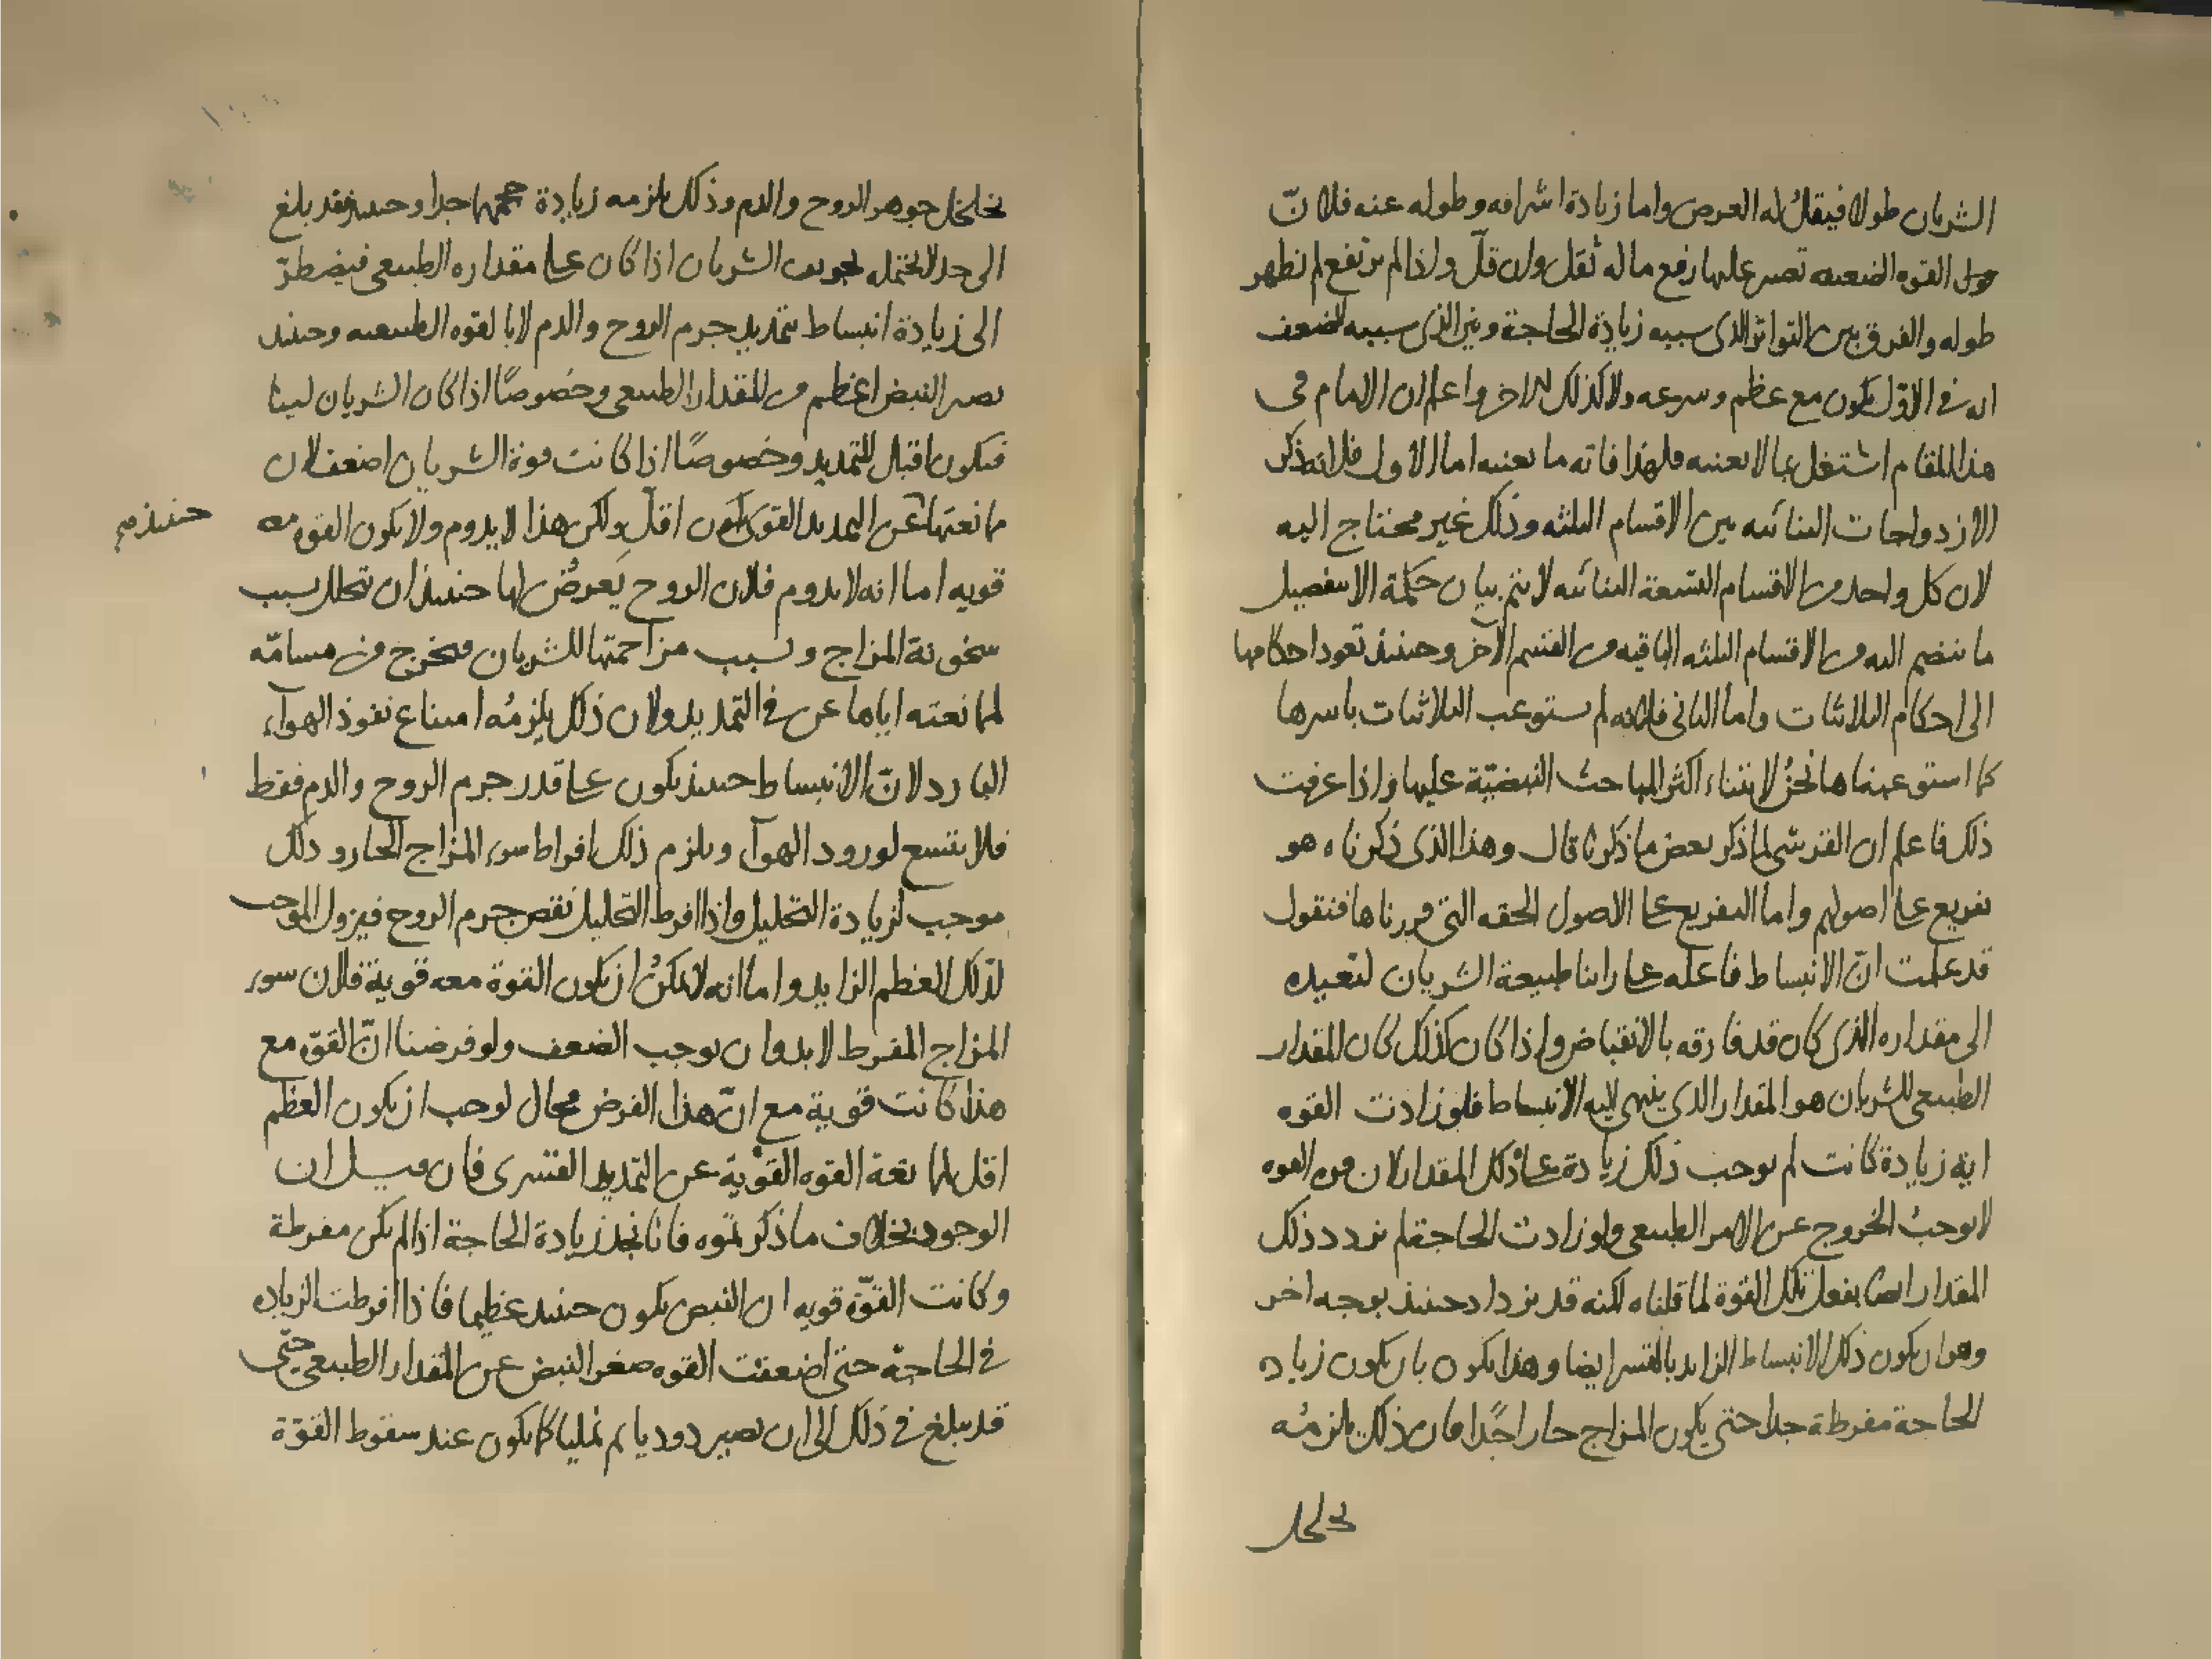 الشريان طولا فيقال له العرض واما زيادة اشرافه وطوله عنه فلان
القوه الضعيفه تصير عليها رفع ماله ثقل وان قل واذا لم يرتفع لم يظهر
طوله والفرق بين التواتر الذى سببه زيادة الحاجة وبين الذى سببه الضعف
انه فى الاول يكون مع عظم وسرعه ولا كذلك الاخر واعلم ان الامام فى
هذا المقام اشتغل بما لا يعنيه فلهذا فاته ما يعنيه اما الاول فلانه ذكر
الازدواجات الثنائيه بين الاقسام الثلثه وذلك غير محتاج اليه
لان كل واحد من الاقسام التسعة الثنائيه لا يتم بيان حكمة الا بتفصيل
ما ينضم اليه من الاقسام الثلثه الباقيه من القسم الاخر وحينئذ تعود احكامها
الى احكام الثلاثيات واما الثانى فلانه لم يستوعب الثلاثيات باسرها
كما استوعبناها نحن لابتناء اكثر المباحث النبضية عليها واذا عرفت
ذلك فاعلم ان القرشى لما ذكر بعض ما ذكرنا قال وهذا الذى ذكرناه هو
تفريع على اصولهم واما التفريع على الاصول الحقه التى قررناها فنقول
قد علمت ان الانبساط فاعله على راينا طبيعة الشريان لتعيده
الى مقداره الذى كان قد فارقه بالانقباض واذا كان كذلك كان المقدار
الطبيعى للشريان هو المقدار الذى ينتهى اليه الانبساط فلو زادت القوه
اية زيادة كانت لم يوجب ذلك زيادة على ذلك المقدار لان قوه القوه
لا يوجب الخروج عن الامر الطبيعى ولو زادت الحاجة لم يزدد ذلك
المقدار ايضا بفعل تلك القوة لما قلناه لكنه قد يزداد حينئذ بوجه اخر
وهو ان يكون ذلك الانبساط الزايد بالقسر ايضا وهذا يكون بان يكون زياده
الحاجة مفرطة جدا حتى يكون المزاج حارا جدا فان ذلك يلزمه
تخلخل
تخلخل جوهر الروح والدم وذلك يلزمه زيادة حجمهما جدا وحينئذ فقد بلغ
الى حد لا يحتمله تجويف الشريان اذا كان على مقداره الطبيعى فيضطر
الى زيادة انبساط بتمديد جرم الروح والدم لا بالقوه الطبيعيه وحينئذ
يصير النبض اعظم من المقدار الطبيعى وخصوصا اذا كان الشريان لينا
فيكون اقبل للتمديد وخصوصا اذا كانت قوة الشريان اضعف لان
ممانعتها عن التمديد القوى يكون اقل ولكن هذا لا يدوم ولا يكون القوه معه
حينئذ صح
قويه اما انه لا يدوم فلان الروح يعرض لها حينئذ ان تحلل بسبب
سخونة المزاج وبسبب مزاحمتها للشريان فتخرج من مسامه
لممانعته اياها عن فى التمديد ولان ذلك يلزمه امتناع نفوذ الهوآء
البارد لان الانبساط حينئذ يكون على قدر جرم الروح والدم فقط
فلا يتسع لورود الهوآء ويلزم ذلك افراط سوء المزاج الحار و ذلك
موجب لزيادة التحليل واذا افرط التحليل نقص جرم الروح فيزول الموجب
لذلك العظم الزايد واما انه لا يمكن ان يكون القوة معه قوية فلان سوء
المزاج المفرط لا بد وان يوجب الضعف ولو فرضنا ان القوة مع
هذا كانت قوية مع ان هذا الفرض محال لوجب ان يكون العظم
اقل لممانعة القوه القوية عن التمديد القسرى فان قيل ان
الوجود بخلاف ما ذكرتموه فانا نجد زيادة الحاجة اذا لم يكن مفرطة
وكانت القوة قويه ان النبض يكون حينئذ عظيما فاذا افرطت الزياده
فى الحاجة حتى اضعفت القوه صغر النبض عن المقدار الطبيعى حتى
قد يبلغ فى ذلك الى ان يصير دوديا ثم نمليا كما يكون عند سقوط القوة